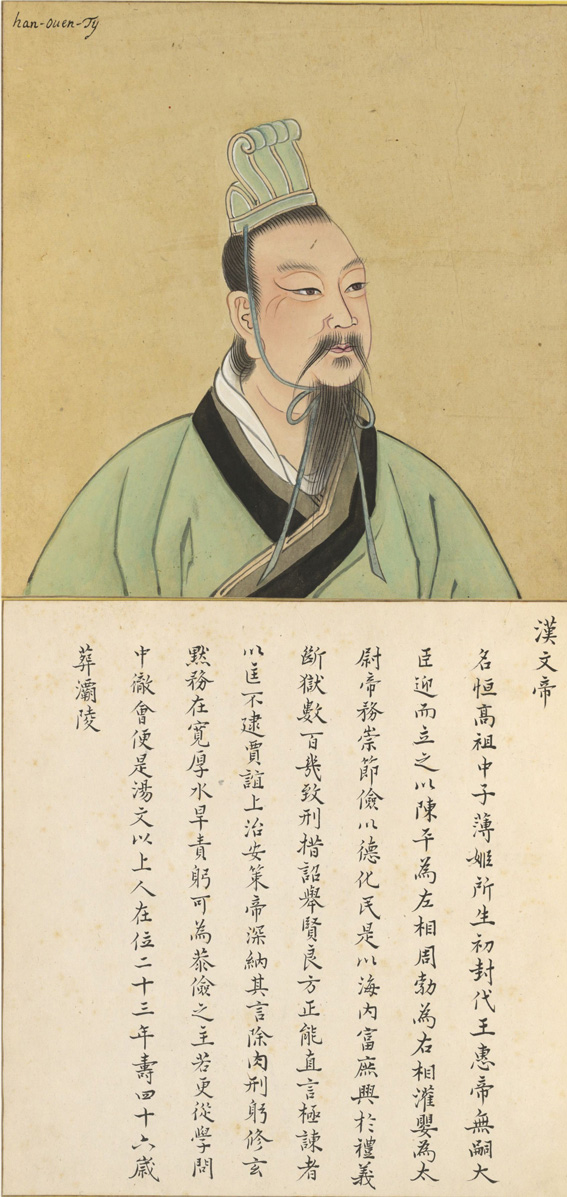 han-ouen-Ty
漢文帝
名恒高祖中子薄姬所生初封代王惠帝無嗣大
臣迎而立之以陳平為左相周勃為右相灌嬰為太
尉帝務崇節儉以德化民是以海內富庶興於禮義
斷獄數百幾致刑措詔舉賢良方正能直言極諫者
以匡不逮賈誼上治安策帝深納其言除肉刑躬修玄
黙務在寬厚水旱責躬可為恭儉之主若更從學問
中徹會便是湯文以上人在位二十三年壽四十六歲
葬灞陵